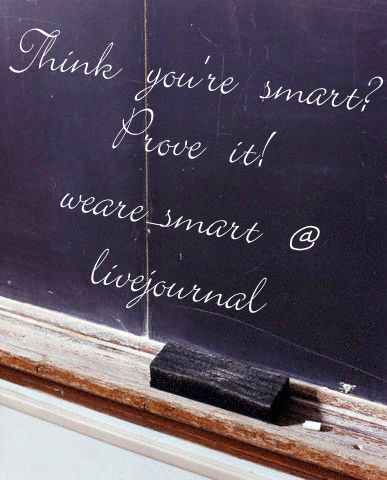 Think you're smart?
Prove it!
weare_smart @
livejournal